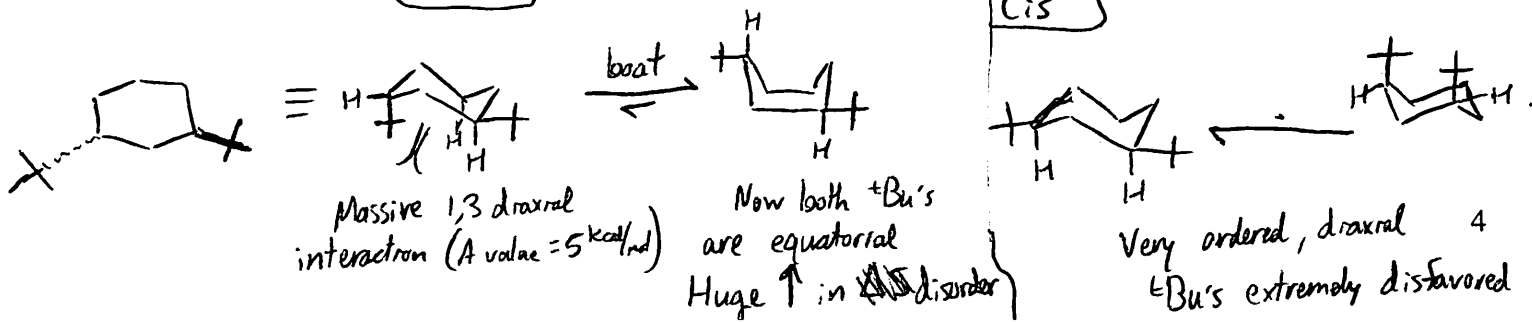 Cis
H
boat
H
H
H
H
H
H
H
H
Massive 1,3 diaxial
interaction (A value = 5 kcal/mol)
Now both tBu's
are equatorial
Huge ↑ in disorder
Very ordered, diaxial
tBu's extremely disfavored
4